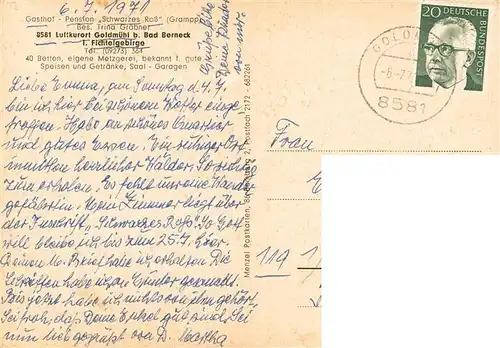 6.7.1971
Gasthof - Pension „Schwarzes Roß" (Grampp)
Bes. Trina Grabner
8581 Luftkurort Goldmühl b. Bad Berneck
i. Fichtelgebirge
Tel. (09273) 364
40 Betten, eigene Metzgerei, bekannt f. gute
Speisen und Getränke, Saal - Garagen
Liebe Emma, am Sonntag d. 4.7.
bin ich hier bei schönem Wetter einge
troffen. Habe ein schönes Quartier
und gutes Essen. Ein ruhiger Ort
inmitten herrlicher Wälder. So richtig
zum erholen. Es fehlt nur eine Wander
gefährtin. Mein Zimmer liegt über
der Inschrift „Schwarzes Roß". So Gott
will bleibe ich bis zum 25.7. hier.
Deinen Brief habe ich erhalten. Die
habe ich
Bis jetzt habe ich nichts von ihm gehört.
Sei froh, daß Deine Enkel gut sind. Sei
nun lieb gegrüßt von D. Martha
Grüße bitte
Deine Kinder
von mir
Menzel Postkarten, 2172 - 682261
GOLD
-6.-7.
8581
20
DEUTSCHE
BUNDESPOST
Frau
119